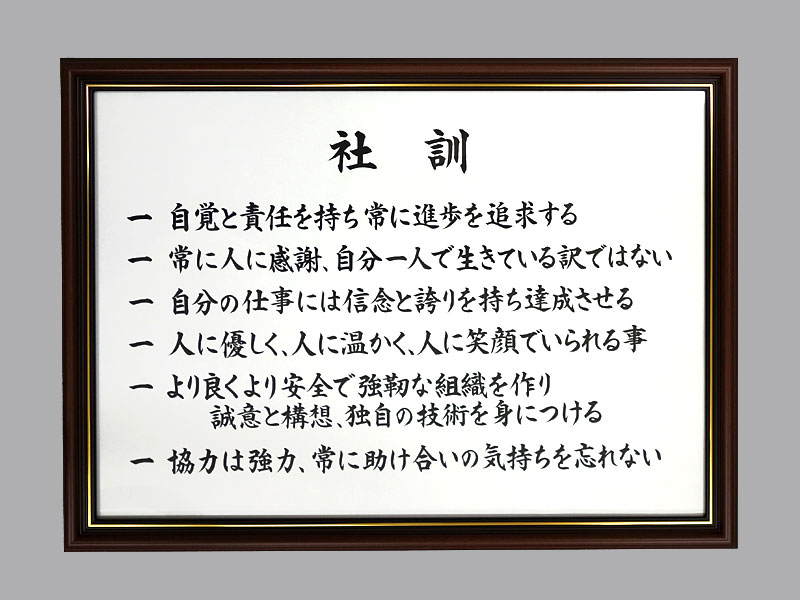 社 訓
一 自覚と責任を持ち常に進歩を追求する
一 常に人に感謝、自分一人で生きている訳ではない
一 自分の仕事には信念と誇りを持ち達成させる
一 人に優しく、人に温かく、人に笑顔でいられる事
一 より良くより安全で強靭な組織を作り
誠意と構想、独自の技術を身につける
一 協力は強力、常に助け合いの気持ちを忘れない